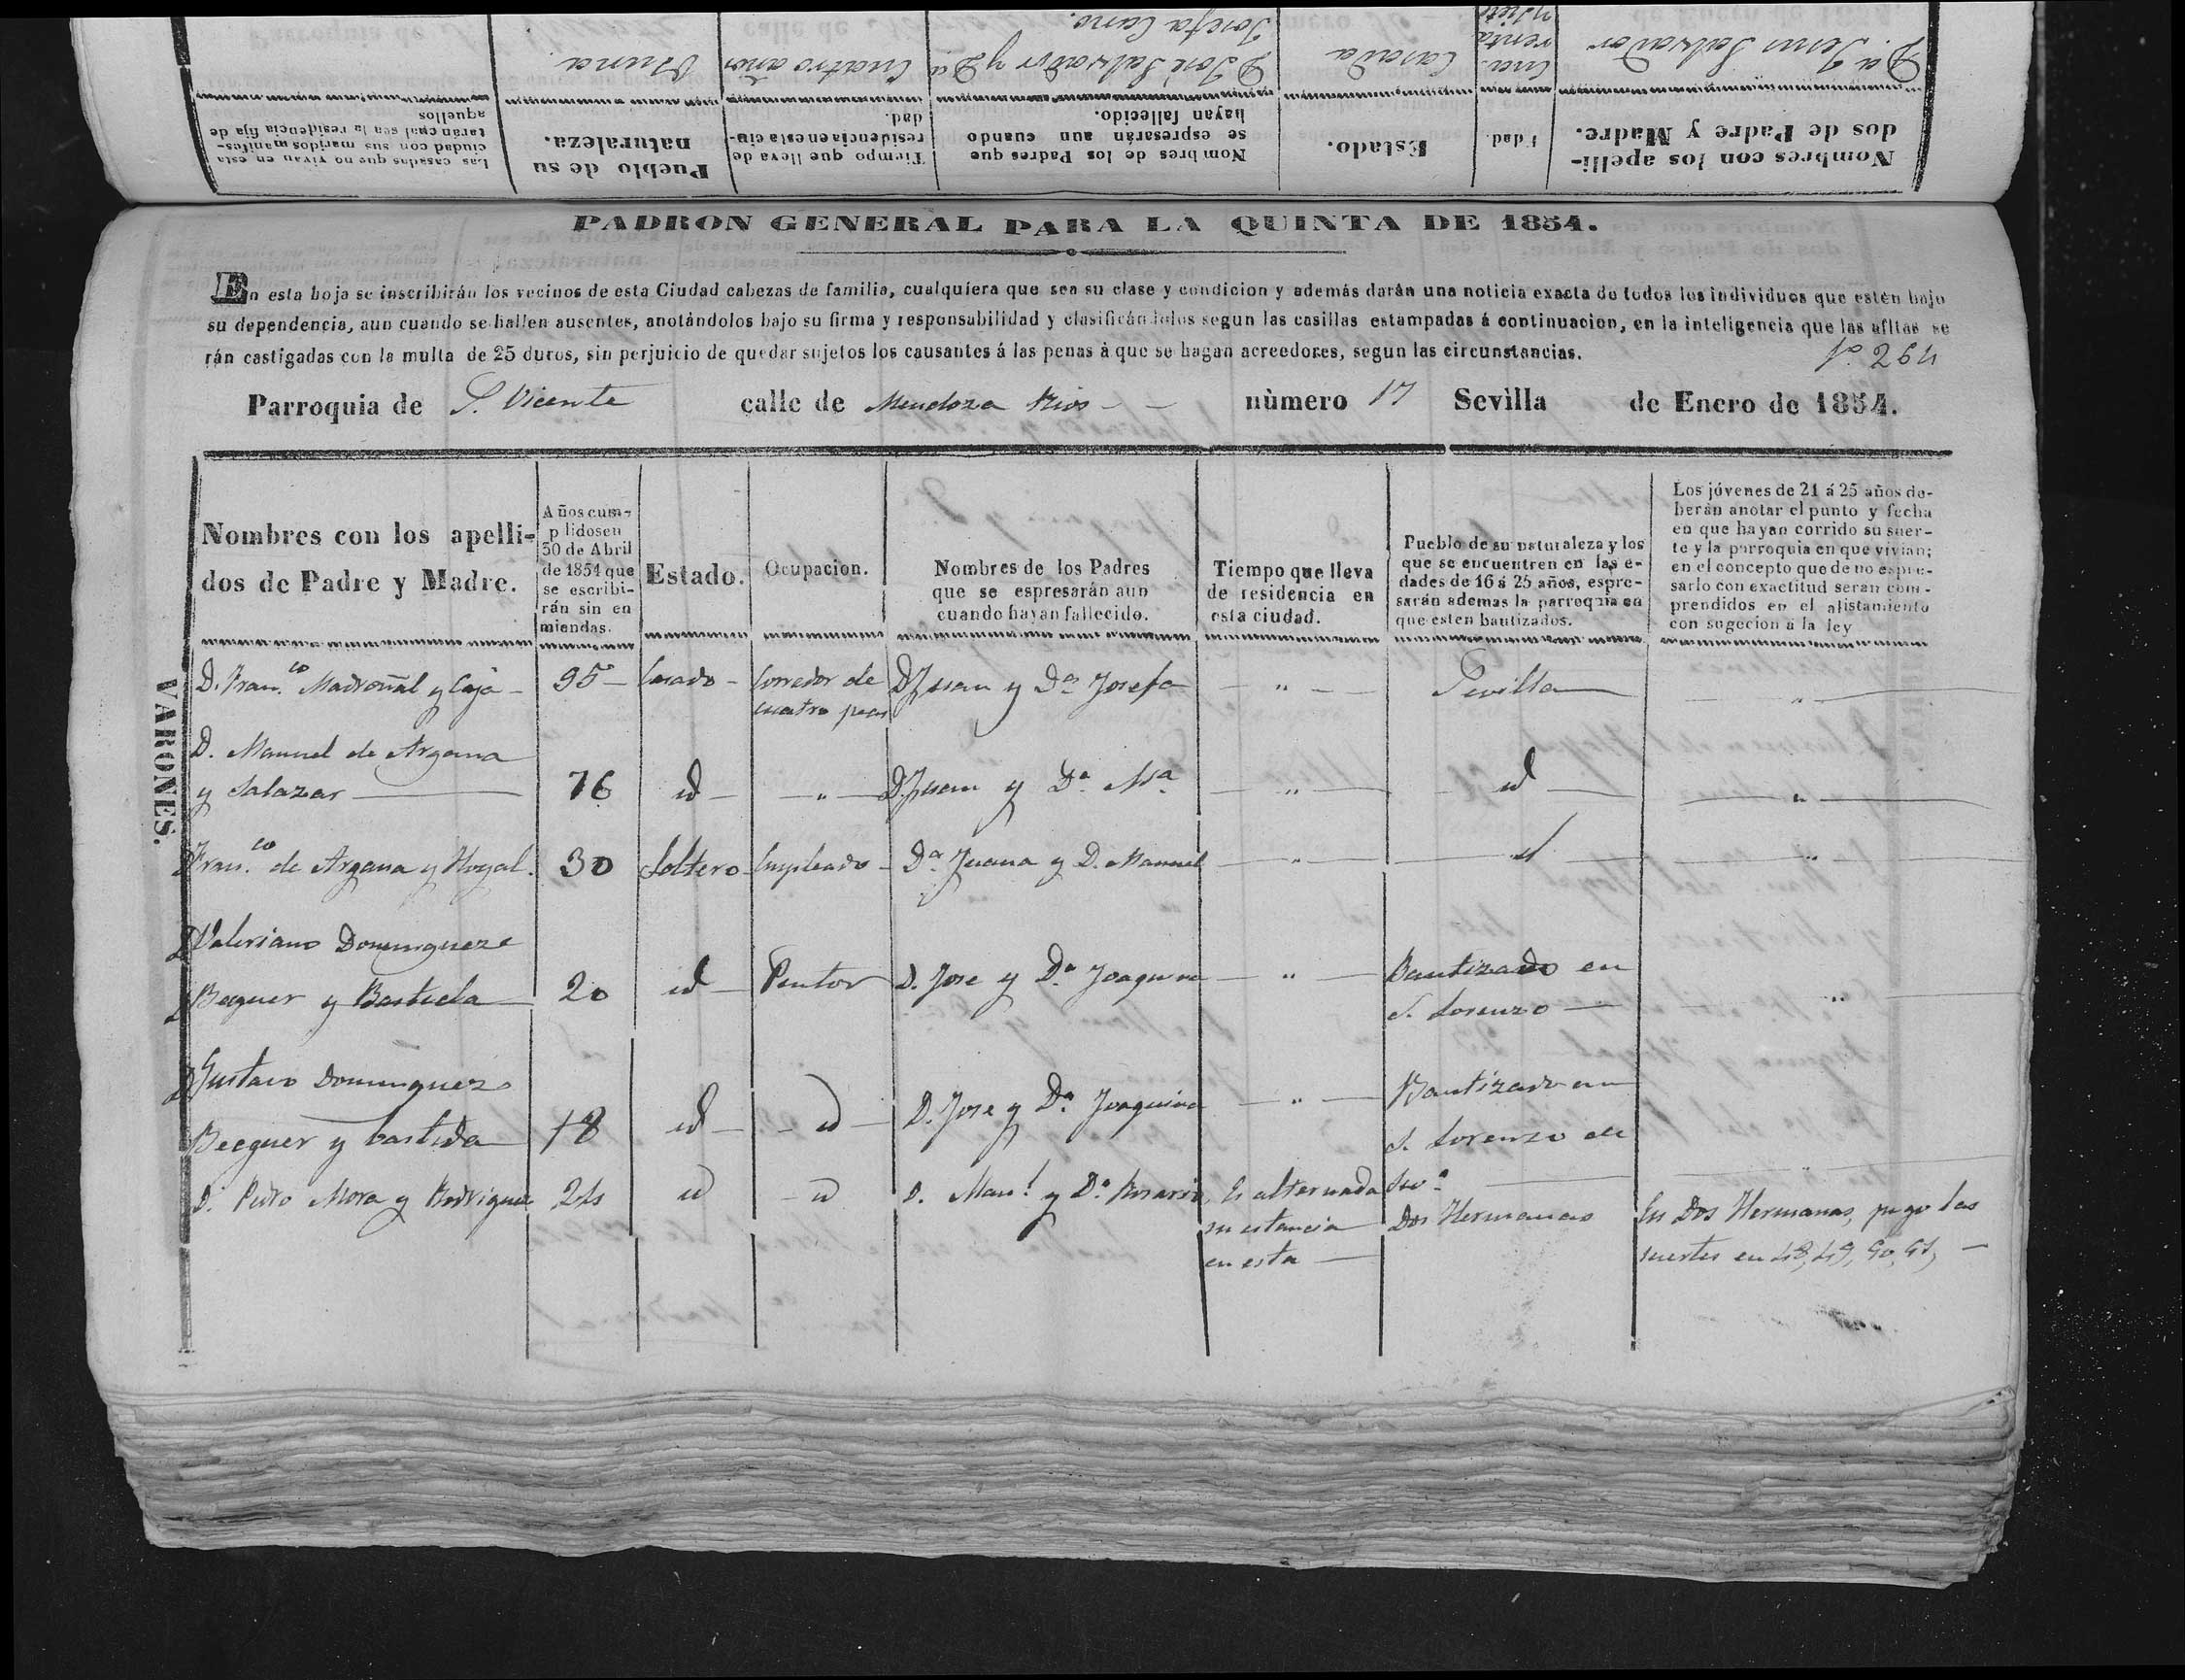 PADRON GENERAL PARA LA QUINTA DE 1854.
En esta hoja se inscribirán los vecinos de esta Ciudad cabezas de familia, cualquiera que sea su clase y condicion y además darán una noticia exacta de todos los individuos que estén bajo
su dependencia, aun cuando se hallen ausentes, anotándolos bajo su firma y responsabilidad y clasificándolos segun las casillas estampadas á continuacion, en la inteligencia que las afltas se
rán castigadas con la multa de 25 duros, sin perjuicio de quedar sujetos los causantes á las penas à que se hagan acreedores, segun las circunstancias.
264
Parroquia de S. Vicente calle de Mendoza Rios nùmero 17 Sevilla de Enero de 1854.
Nombres con los apelli-
dos de Padre y Madre.
Años cum-
p lidos en
30 de Abril
de 1854 que
se escribi-
rán sin en
miendas.
Estado.
Ocupacion.
Nombres de los Padres
que se espresarán aun
cuando hayan fallecido.
Tiempo que lleva
de residencia en
esta ciudad.
Pueblo de su naturaleza y los
que se encuentren en las e-
dades de 16 á 25 años, espre-
sarán ademas la parroquia en
que esten bautizados.
Los jóvenes de 21 á 25 años de-
berán anotar el punto y fecha
en que hayan corrido su suer-
te y la parroquia en que vivian;
en el concepto que de no espre-
sarlo con exactitud seran com-
prendidos en el alistamiento
con sugecion á la ley
VARONES.
D. Fran.co Madroñal y Caja — 95 — Casado — Corredor de D. Juan y Da Josefa — " — Sevilla — " —
cuatro
D. Manuel de Argama
y Salazar — 76 id — " — D. Juan y Da Ma — " — id — " —
D Fran.co de Argama y Hoyal. 30 Soltero — Empleado — Da Juana y D. Manuel — " — id — " —
D Valeriano Dominguez
Becquer y Bastida — 20 id — Pintor D. Jose y Da Joaquina — " — Bautizado en — " —
S. Lorenzo —
D Gustavo Dominguez
Becquer y bastida — 18 id — id — D. Jose y Da Joaquina — " — Bautizado en
S. Lorenzo de
D. Pedro Mora y Rodriguez 24 id — id D. Man.l y Da Rosario Es alternada — " —
su estancia Dos Hermanas En Dos Hermanas, jugo las
en esta — suertes en 48, 49, 50, 51, —
Nombres con los apelli-
dos de Padre y Madre.
Edad.
Estado.
Nombres de los Padres que
se espresarán aun cuando
hayan fallecido.
Tiempo que lleva de
residencia en esta ciu-
dad.
Pueblo de su
naturaleza.
Las casadas que no vivan en esta
ciudad con sus maridos manifes-
tarán cual sea la residencia fija de
aquellos
Casada
D. José Salvador y Da
Josefa Cano.
Cuatro años
Osuna